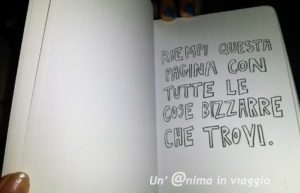 RIEMPI QUESTA
PAGINA CON
TUTTE LE
COSE BIZZARRE
CHE TROVI.
Un' @nima in viaggio